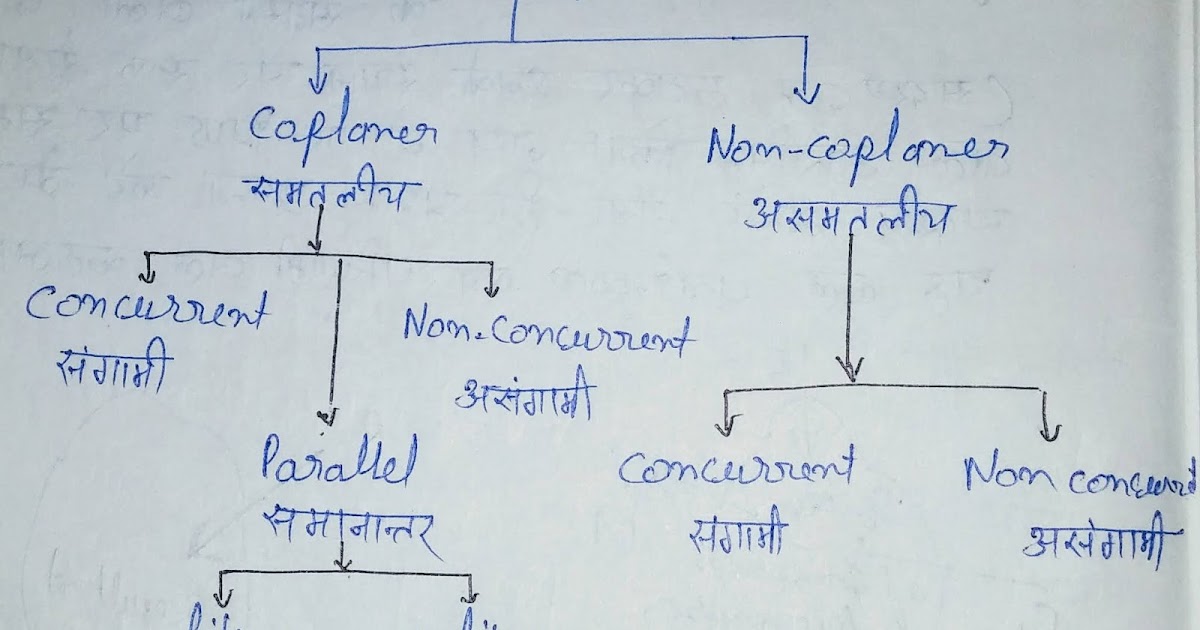 Coplaner
समतलीय
Non-coplaner
असमतलीय
Concurrent
संगामी
Non-Concurrent
असंगामी
Parallel
समानान्तर
Concurrent
संगामी
Non concurrent
असंगामी